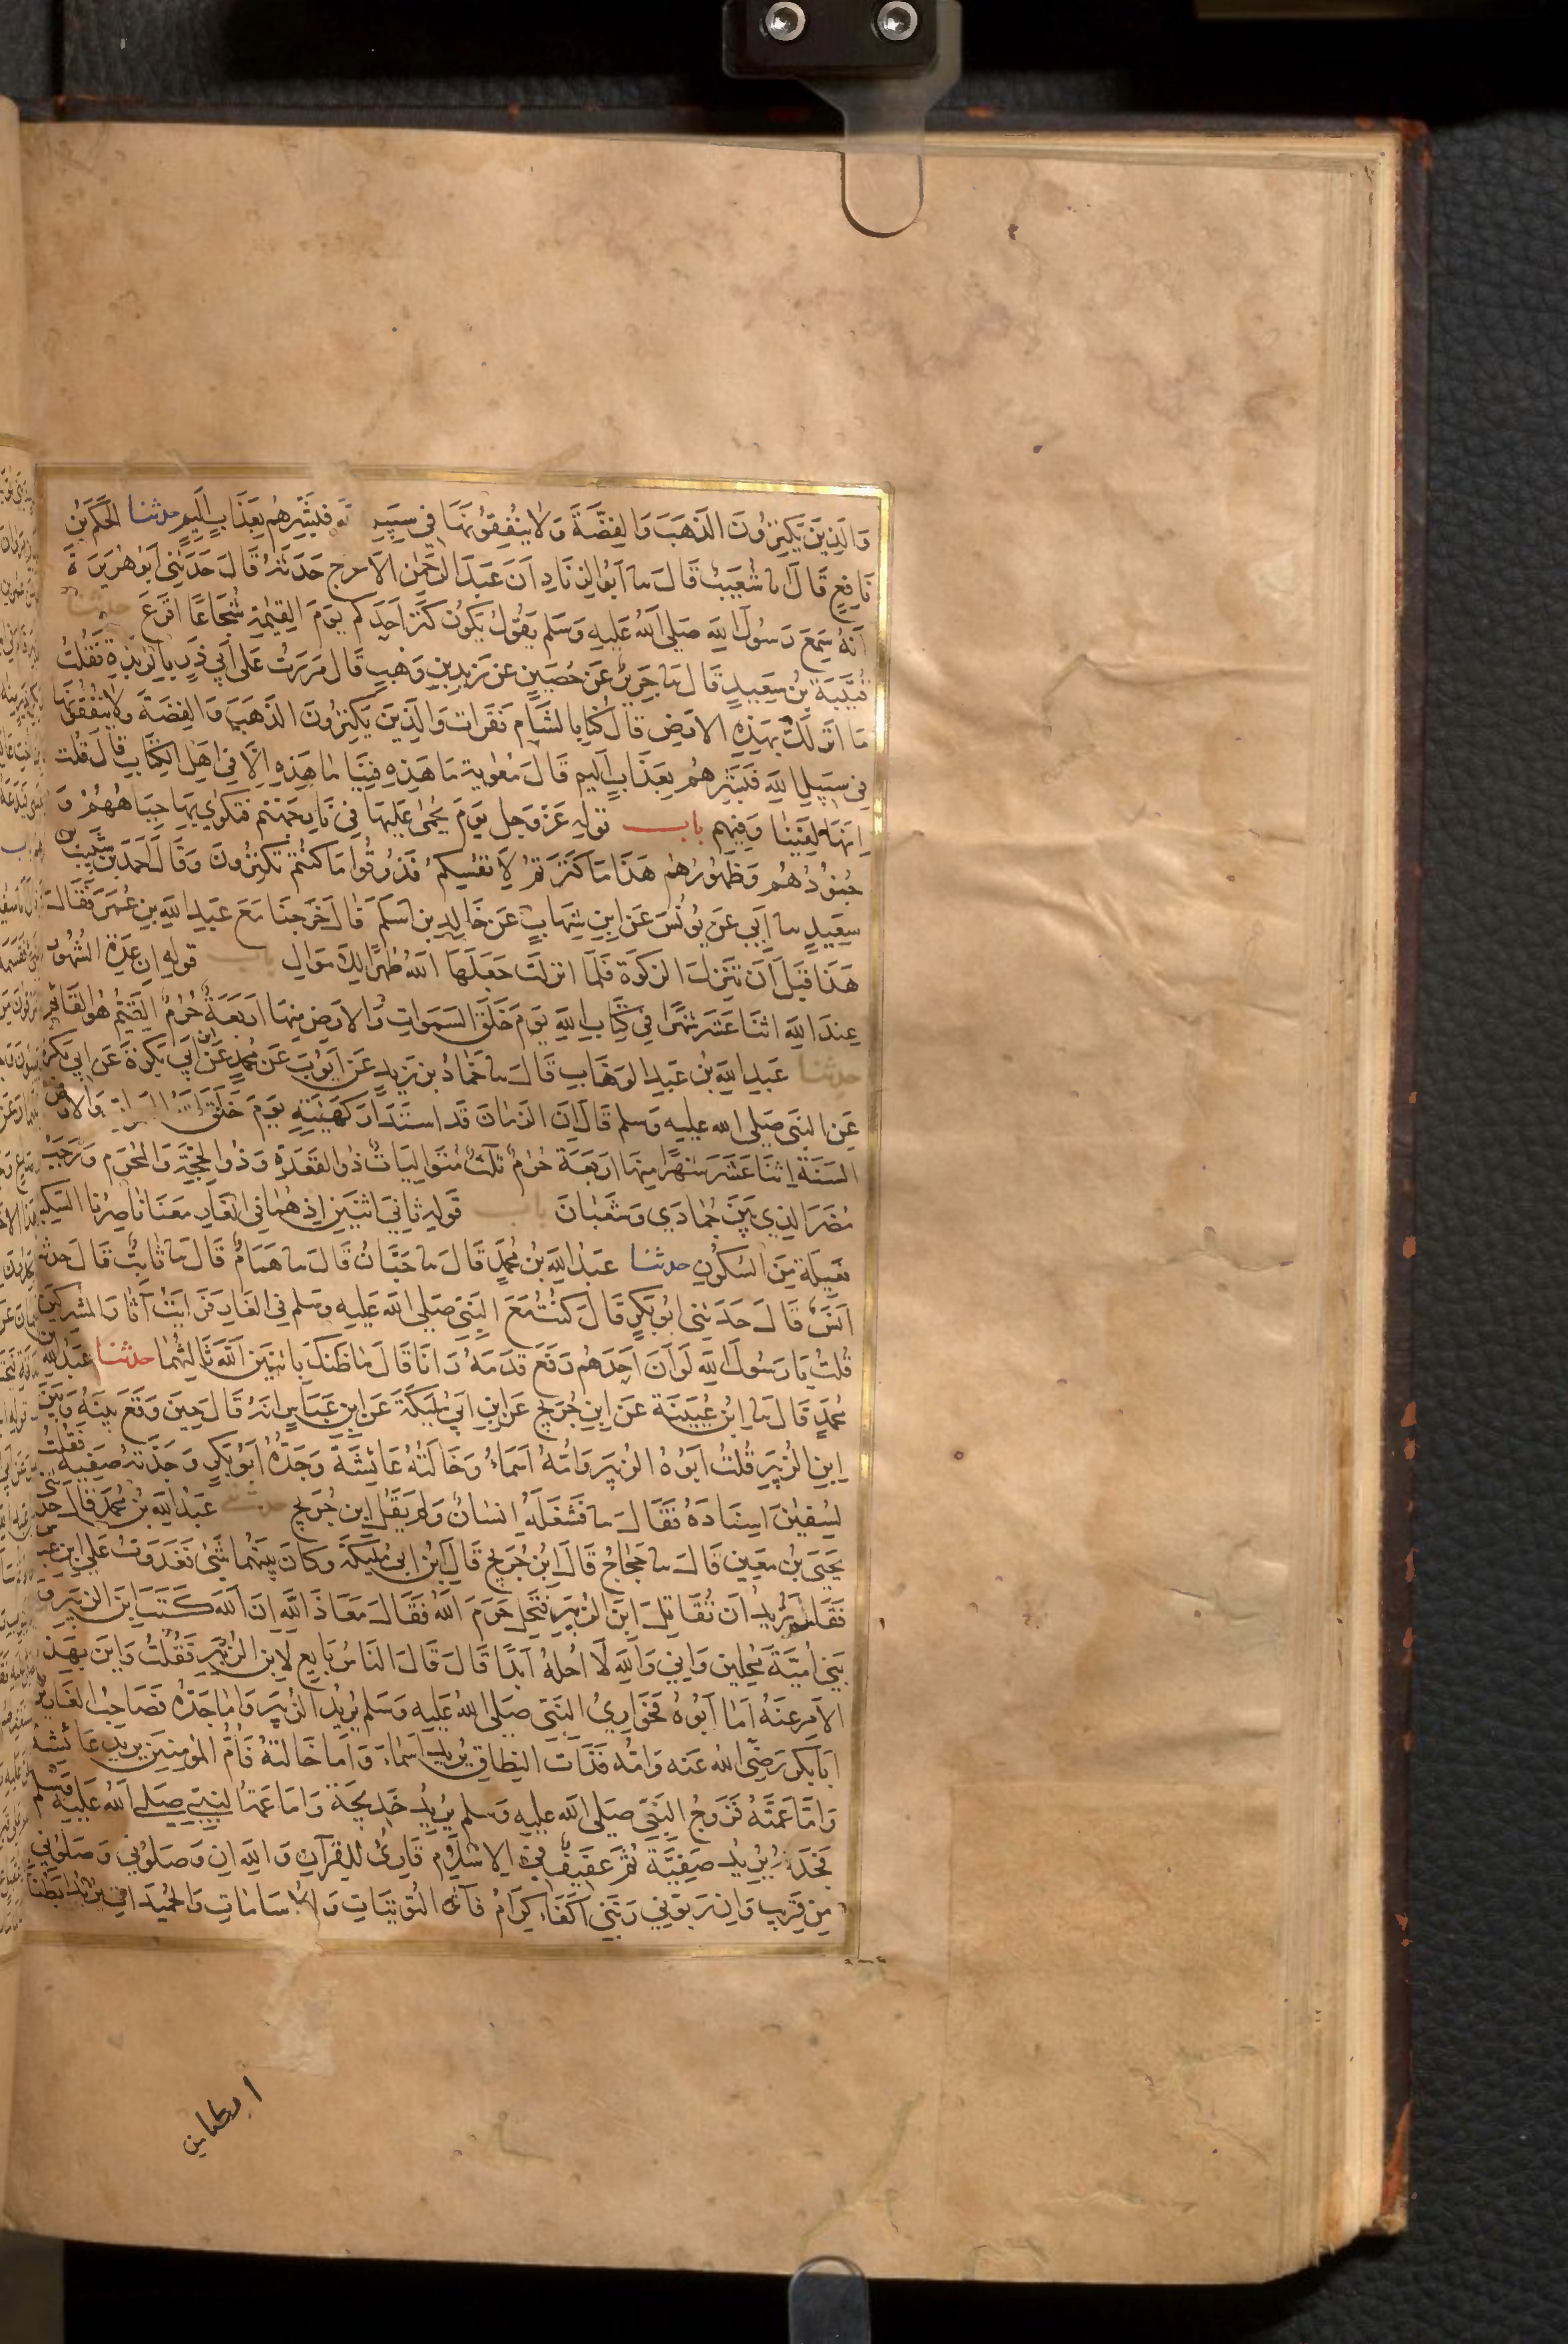 وَالَّذِينَ يَكْنِزُونَ الذَّهَبَ وَالفِضَّةَ وَلَا يُنْفِقُونَهَا فِي سَبِيلِ اللَّهِ فَبَشِّرْهُم بِعَذَابٍ أَلِيمٍ حدثنا الحَكَمُ بْنُ
نَافِعٍ قَالَ نا شُعَيْبٌ قَالَ نا أَبُو الزِّنَادِ أَنَّ عَبْدَ الرَّحْمٰنِ الأَعْرَجَ حَدَّثَهُ قَالَ حَدَّثَنِي أَبُو هُرَيْرَةَ
أَنَّهُ سَمِعَ رَسُولَ اللَّهِ صَلَّى اللَّهُ عَلَيْهِ وَسَلَّمَ يَقُولُ يَكُونُ كَنْزُ أَحَدِكُم يَوْمَ القِيٰمَةِ شُجَاعًا أَقْرَعَ حدثنا
قُتَيْبَةُ بْنُ سَعِيدٍ قَالَ نا جَرِيرٌ عَنْ حُصَيْنٍ عَنْ زَيْدِ بْنِ وَهْبٍ قَالَ مَرَرْتُ عَلَى أَبِي ذَرٍّ بِالرَّبَذَةِ فَقُلْتُ
مَا أَنْزَلَكَ بِهَذِهِ الأَرْضِ قَالَ كُنَّا بِالشَّامِ فَقَرَأْتُ وَالَّذِينَ يَكْنِزُونَ الذَّهَبَ وَالفِضَّةَ وَلَا يُنْفِقُونَهَا
فِي سَبِيلِ اللَّهِ فَبَشِّرْهُم بِعَذَابٍ أَلِيمٍ قَالَ مُعٰوِيَةُ مَا هَذِهِ فِينَا مَا هَذِهِ إِلَّا فِي أَهْلِ الكِتَابِ قَالَ قُلْتُ
إِنَّهَا لَفِينَا وَفِيهِم باب قولِهِ عَزَّ وَجَلَّ يَوْمَ يُحْمَى عَلَيْهَا فِي نَارِ جَهَنَّمَ فَتُكْوَى بِهَا جِبَاهُهُمْ وَ
جُنُوبُهُم وَظُهُورُهُم هَذَا مَا كَنَزْتُمْ لِأَنْفُسِكُمْ فَذُوقُوا مَا كُنْتُمْ تَكْنِزُونَ وَقَالَ أَحْمَدُ بْنُ شَبِيبِ بْنِ
سَعِيدٍ نا أَبِي عَنْ يُونُسَ عَنِ ابْنِ شِهَابٍ عَنْ خَالِدِ بْنِ أَسْلَمَ قَالَ خَرَجْنَا مَعَ عَبْدِ اللَّهِ بْنِ عُمَرَ فَقَالَ
هَذَا قَبْلَ أَنْ تُنْزَلَ الزَّكَوةُ فَلَمَّا أُنْزِلَتْ جَعَلَهَا اللَّهُ طُهْرًا لِلْأَمْوَالِ باب قَوْلِهِ إِنَّ عِدَّةَ الشُّهُورِ
عِنْدَ اللَّهِ اثْنَا عَشَرَ شَهْرًا فِي كِتَابِ اللَّهِ يَوْمَ خَلَقَ السَّمَوَاتِ وَالأَرْضَ مِنْهَا أَرْبَعَةٌ حُرُمٌ القَيِّمُ هُوَ القَائِمُ
حدثنا عَبْدُ اللَّهِ بْنُ عَبْدِ الوَهَّابِ قَالَ نا حَمَّادُ بْنُ زَيْدٍ عَنْ أَيُّوبَ عَنْ مُحَمَّدٍ عَنِ ابْنِ أَبِي بَكْرَةَ عَنْ أَبِي بَكْرَةَ
عَنِ النَّبِيِّ صَلَّى اللَّهُ عَلَيْهِ وَسَلَّمَ قَالَ إِنَّ الزَّمَانَ قَدِ اسْتَدَارَ كَهَيْئَتِهِ يَوْمَ خَلَقَ اللَّهُ السَّمَوَاتِ وَالأَرْضَ
السَّنَةُ اثْنَا عَشَرَ شَهْرًا مِنْهَا أَرْبَعَةٌ حُرُمٌ ثَلٰثٌ مُتَوَالِيَاتٌ ذُو القَعْدَةِ وَذُو الحِجَّةِ وَالمُحَرَّمُ وَرَجَبُ
مُضَرَ الَّذِي بَيْنَ جُمَادَى وَشَعْبَانَ باب قَوْلِهِ ثَانِيَ اثْنَيْنِ إِذْ هُمَا فِي الغَارِ مَعَنَا نَاصِرُنَا السَّكِينَةُ
فَعِيلَةٌ مِنَ السُّكُونِ حدثنا عَبْدُ اللَّهِ بْنُ مُحَمَّدٍ قَالَ نا حَبَّانُ قَالَ نا هَمَّامٌ قَالَ نا ثَابِتٌ قَالَ حدثنا
أَنَسٌ قَالَ حَدَّثَنِي أَبُو بَكْرٍ قَالَ كُنْتُ مَعَ النَّبِيِّ صَلَّى اللَّهُ عَلَيْهِ وَسَلَّمَ فِي الغَارِ فَرَأَيْتُ آثَارَ المُشْرِكِينَ
قُلْتُ يَا رَسُولَ اللَّهِ لَوْ أَنَّ أَحَدَهُم رَفَعَ قَدَمَهُ رَآنَا قَالَ مَا ظَنُّكَ بِاثْنَيْنِ اللَّهُ ثَالِثُهُمَا حدثنا عَبْدُ اللَّهِ بْنُ
مُحَمَّدٍ قَالَ نا ابْنُ عُيَيْنَةَ عَنِ ابْنِ جُرَيْجٍ عَنِ ابْنِ أَبِي مُلَيْكَةَ عَنِ ابْنِ عَبَّاسٍ أَنَّهُ قَالَ حِينَ وَقَعَ بَيْنَهُ وَبَيْنَ
ابْنِ الزُّبَيْرِ قُلْتُ أَبُوهُ الزُّبَيْرُ وَأُمُّهُ أَسْمَاءُ وَخَالَتُهُ عَائِشَةُ وَجَدُّهُ أَبُو بَكْرٍ وَجَدَّتُهُ صَفِيَّةُ فَقُلْتُ
لِسُفْيٰنَ إِسْنَادَهُ فَقَالَ نا فَشَغَلَهُ إِنْسَانٌ وَلَمْ يَقُلِ ابْنُ جُرَيْجٍ حدثني عَبْدُ اللَّهِ بْنُ مُحَمَّدٍ قَالَ حَدَّثَنِي
يَحْيَى بْنُ مَعِينٍ قَالَ نا حَجَّاجٌ قَالَ ابْنُ جُرَيْجٍ قَالَ ابْنُ أَبِي مُلَيْكَةَ وَكَانَ بَيْنَهُمَا شَيْءٌ فَغَدَوْتُ عَلَى ابْنِ عَبَّاسٍ
فَقُلْتُ أَتُرِيدُ أَنْ تُقَاتِلَ ابْنَ الزُّبَيْرِ فَتُحِلَّ حَرَمَ اللَّهِ فَقَالَ مَعَاذَ اللَّهِ إِنَّ اللَّهَ كَتَبَ ابْنَ الزُّبَيْرِ وَ
بَنِي أُمَيَّةَ مُحِلِّينَ وَإِنِّي وَاللَّهِ لَا أُحِلُّهُ أَبَدًا قَالَ قَالَ النَّاسُ بَايِعْ لِابْنِ الزُّبَيْرِ فَقُلْتُ وَأَيْنَ بِهَذَا
الأَمْرِ عَنْهُ أَمَّا أَبُوهُ فَحَوَارِيُّ النَّبِيِّ صَلَّى اللَّهُ عَلَيْهِ وَسَلَّمَ يُرِيدُ الزُّبَيْرَ وَأَمَّا جَدُّهُ فَصَاحِبُ الغَارِ يُرِيدُ
أَبَا بَكْرٍ رَضِيَ اللَّهُ عَنْهُ وَأُمُّهُ فَذَاتُ النِّطَاقِ يُرِيدُ أَسْمَاءَ وَأَمَّا خَالَتُهُ فَأُمُّ المُؤْمِنِينَ يُرِيدُ عَائِشَةَ
وَأَمَّا عَمَّتُهُ فَزَوْجُ النَّبِيِّ صَلَّى اللَّهُ عَلَيْهِ وَسَلَّمَ يُرِيدُ خَدِيجَةَ وَأَمَّا عَمَّةُ النَّبِيِّ صَلَّى اللَّهُ عَلَيْهِ وَسَلَّمَ
فَجَدَّتُهُ يُرِيدُ صَفِيَّةَ ثُمَّ عَفِيفٌ فِي الإِسْلَامِ قَارِئٌ لِلْقُرْآنِ وَاللَّهِ إِنْ وَصَلُونِي وَصَلُونِي
مِنْ قَرِيبٍ وَإِنْ رَبُّونِي رَبَّنِي أَكْفَاءٌ كِرَامٌ فَآثَرَ التُّوَيْتَاتِ وَالأُسَامَاتِ وَالحُمَيْدَاتِ يُرِيدُ أَبْطُنًا